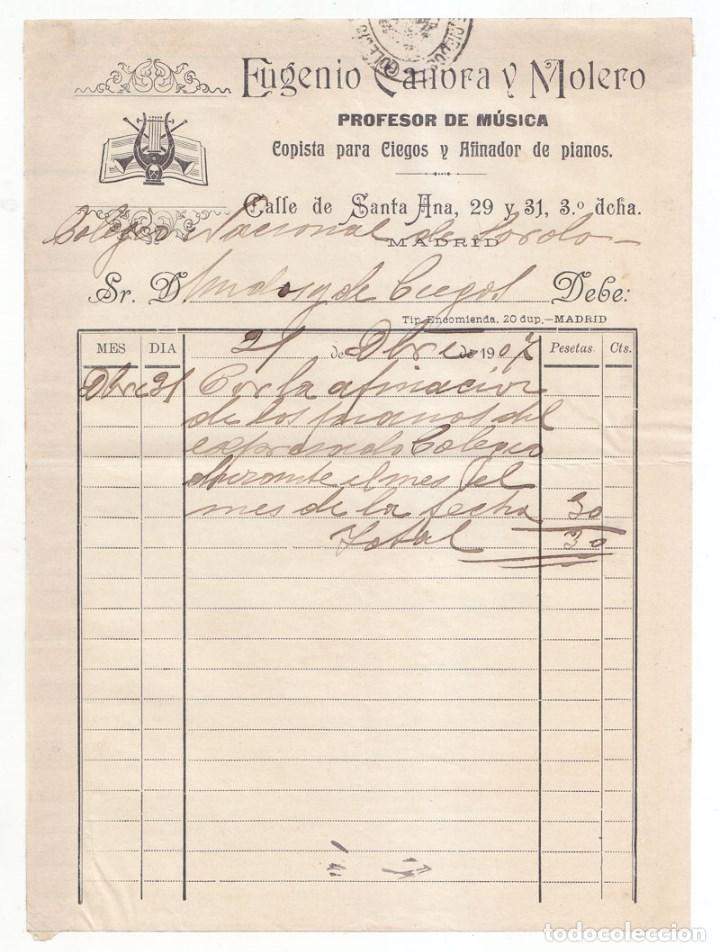 Eugenio Canora y Molero
PROFESOR DE MÚSICA
Copista para Ciegos y Afinador de pianos.
Calle de Santa Ana, 29 y 31, 3.º dcha.
MADRID
Colegio Nacional de Sordo-
Sr. D Mudos y de Ciegos Debe:
Tip. Encomienda, 20 dup.-MADRID
MES DIA 21 de Dbre de 1907 Pesetas Cts.
Dbre 21 Por la afinacion
de los pianos del
expresado Colegio
durante el mes del
mes de la fecha 30
Total 30
todocoleccion